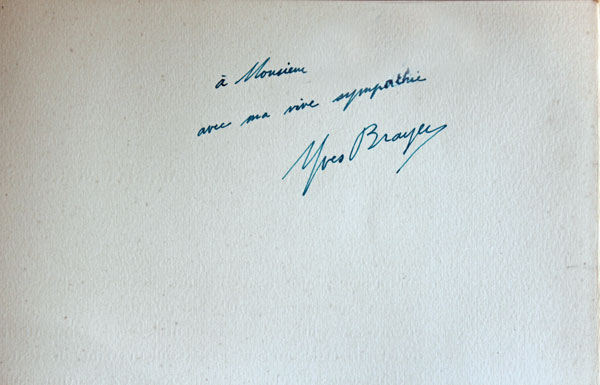 à Monsieur
avec ma vive sympathie
Yves Brayer